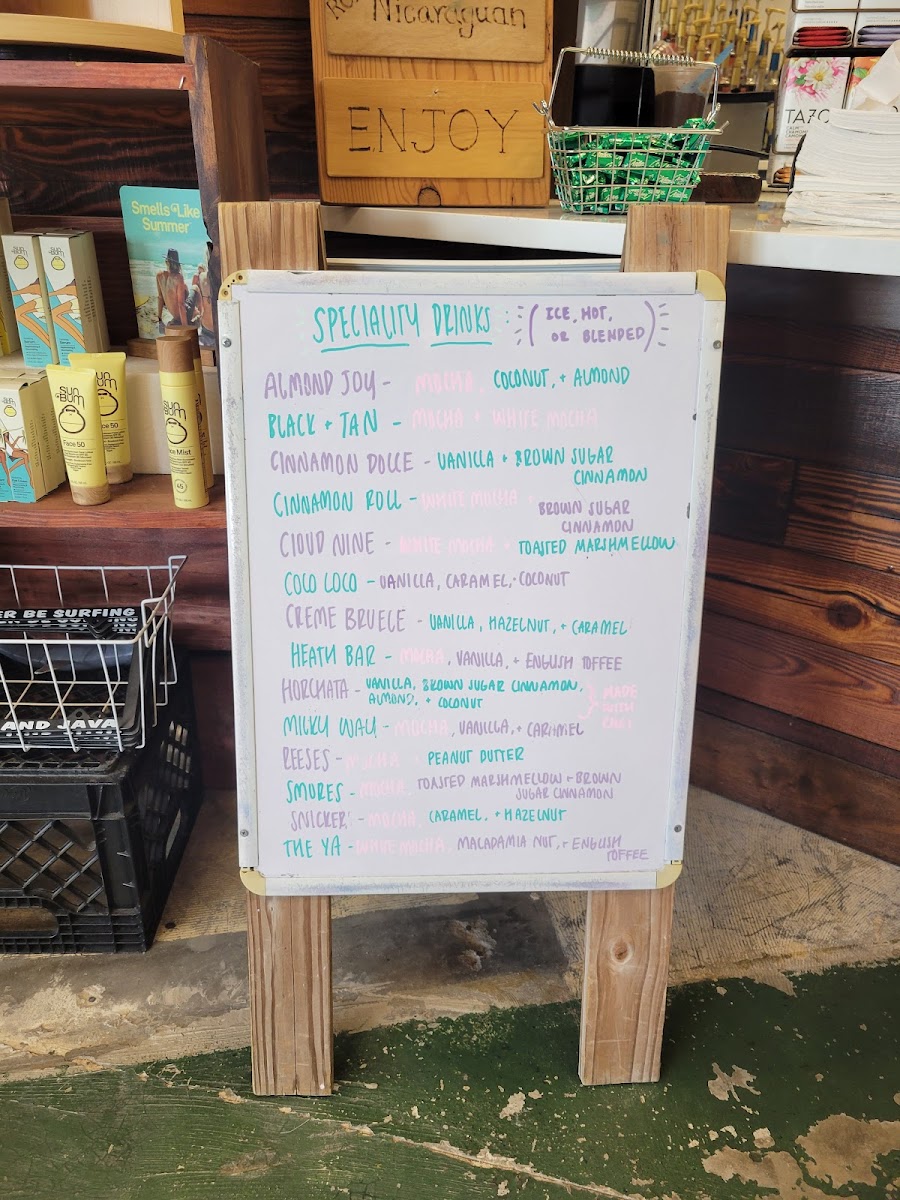 Nicaraguan
ENJOY
TAZO
Smells Like
Summer
SUN BUM
SUN BUM
Face 50
Face Mist
45
ER BE SURFING
AND JAVA
SPECIALITY DRINKS : (ICE, HOT,
OR BLENDED)
ALMOND JOY - MOCHA, COCONUT, + ALMOND
BLACK + TAN - MOCHA + WHITE MOCHA
CINNAMON DOLCE - VANILLA + BROWN SUGAR
CINNAMON
CINNAMON ROLL - WHITE MOCHA + BROWN SUGAR
CINNAMON
CLOUD NINE - WHITE MOCHA + TOASTED MARSHMELLOW
COCO LOCO - VANILLA, CARAMEL, + COCONUT
CREME BRUELE - VANILLA, HAZELNUT, + CARAMEL
HEATH BAR - MOCHA, VANILLA, + ENGLISH TOFFEE
HORCHATA - VANILLA, BROWN SUGAR CINNAMON,
ALMOND, + COCONUT
MADE
WITH
CHAI
MILKY WAY - MOCHA, VANILLA, + CARAMEL
REESES - MOCHA + PEANUT BUTTER
SMORES - MOCHA, TOASTED MARSHMELLOW + BROWN
SUGAR CINNAMON
SNICKERS - MOCHA, CARAMEL, + HAZELNUT
THE YA - WHITE MOCHA, MACADAMIA NUT, + ENGLISH
TOFFEE